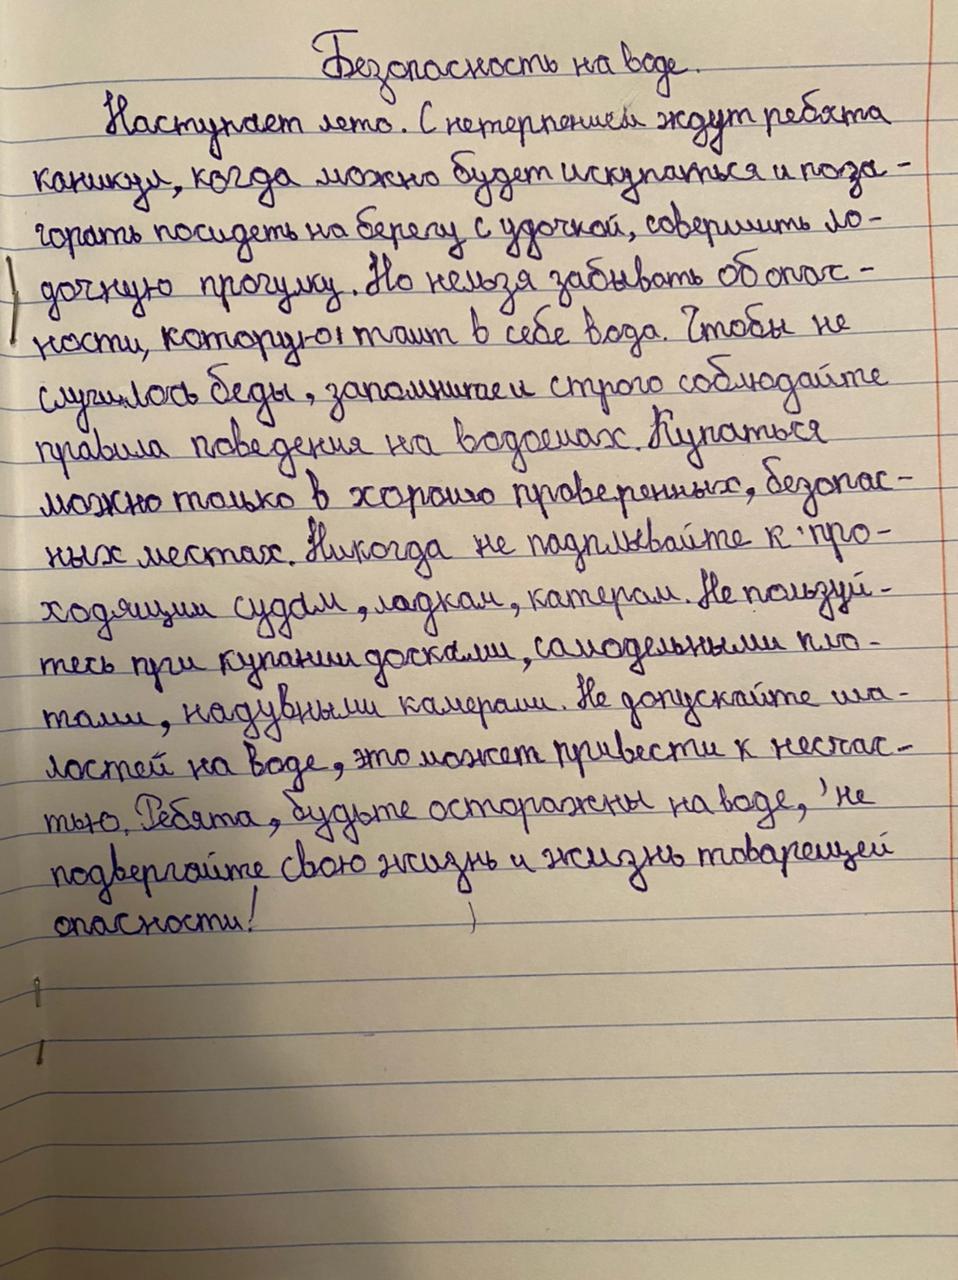 Безопасность на воде.
Наступает лето. С нетерпением ждут ребята
каникул, когда можно будет искупаться и поза-
горать посидеть на берегу с удочкой, совершить ло-
дочную прогулку. Но нельзя забывать об опас-
ности, которую таит в себе вода. Чтобы не
случилось беды, запомните и строго соблюдайте
правила поведения на водоемах. Купаться
можно только в хорошо проверенных, безопас-
ных местах. Никогда не падплывайте к про-
ходящим судам, ладкам, катерам. Не пользуй-
тесь при купании досками, самодельными пло-
тами, надувными камерами. Не допускайте ша-
лостей на воде, это может привести к несчас-
тью. Ребята, будьте осторажны на воде, не
подвергайте свою жизнь и жизнь товарещей
опасности!